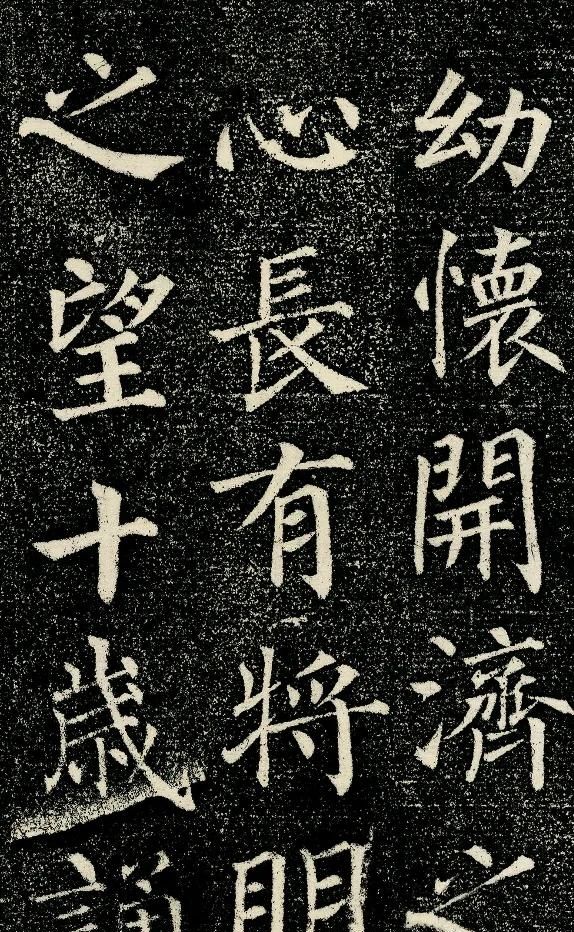 幼懷開濟之
心長有將門
之望十歲